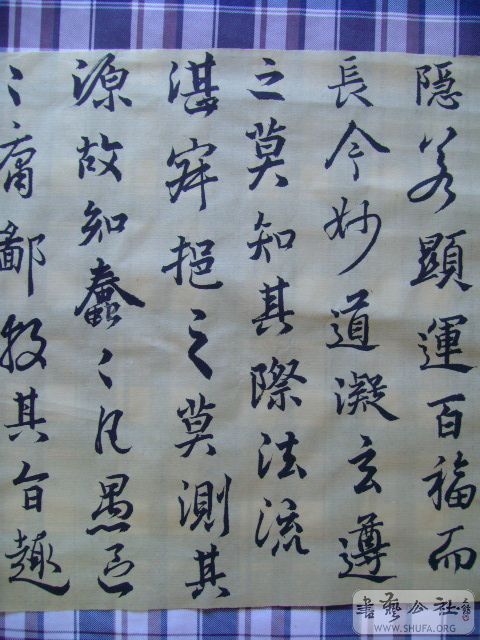 隱若顯運百福而
長今妙道凝玄遵
之莫知其際法流
湛寂挹之莫測其
源故知蠢〻凡愚區
〻庸鄙投其旨趣
書藝公社
WWW.SHUFA.ORG